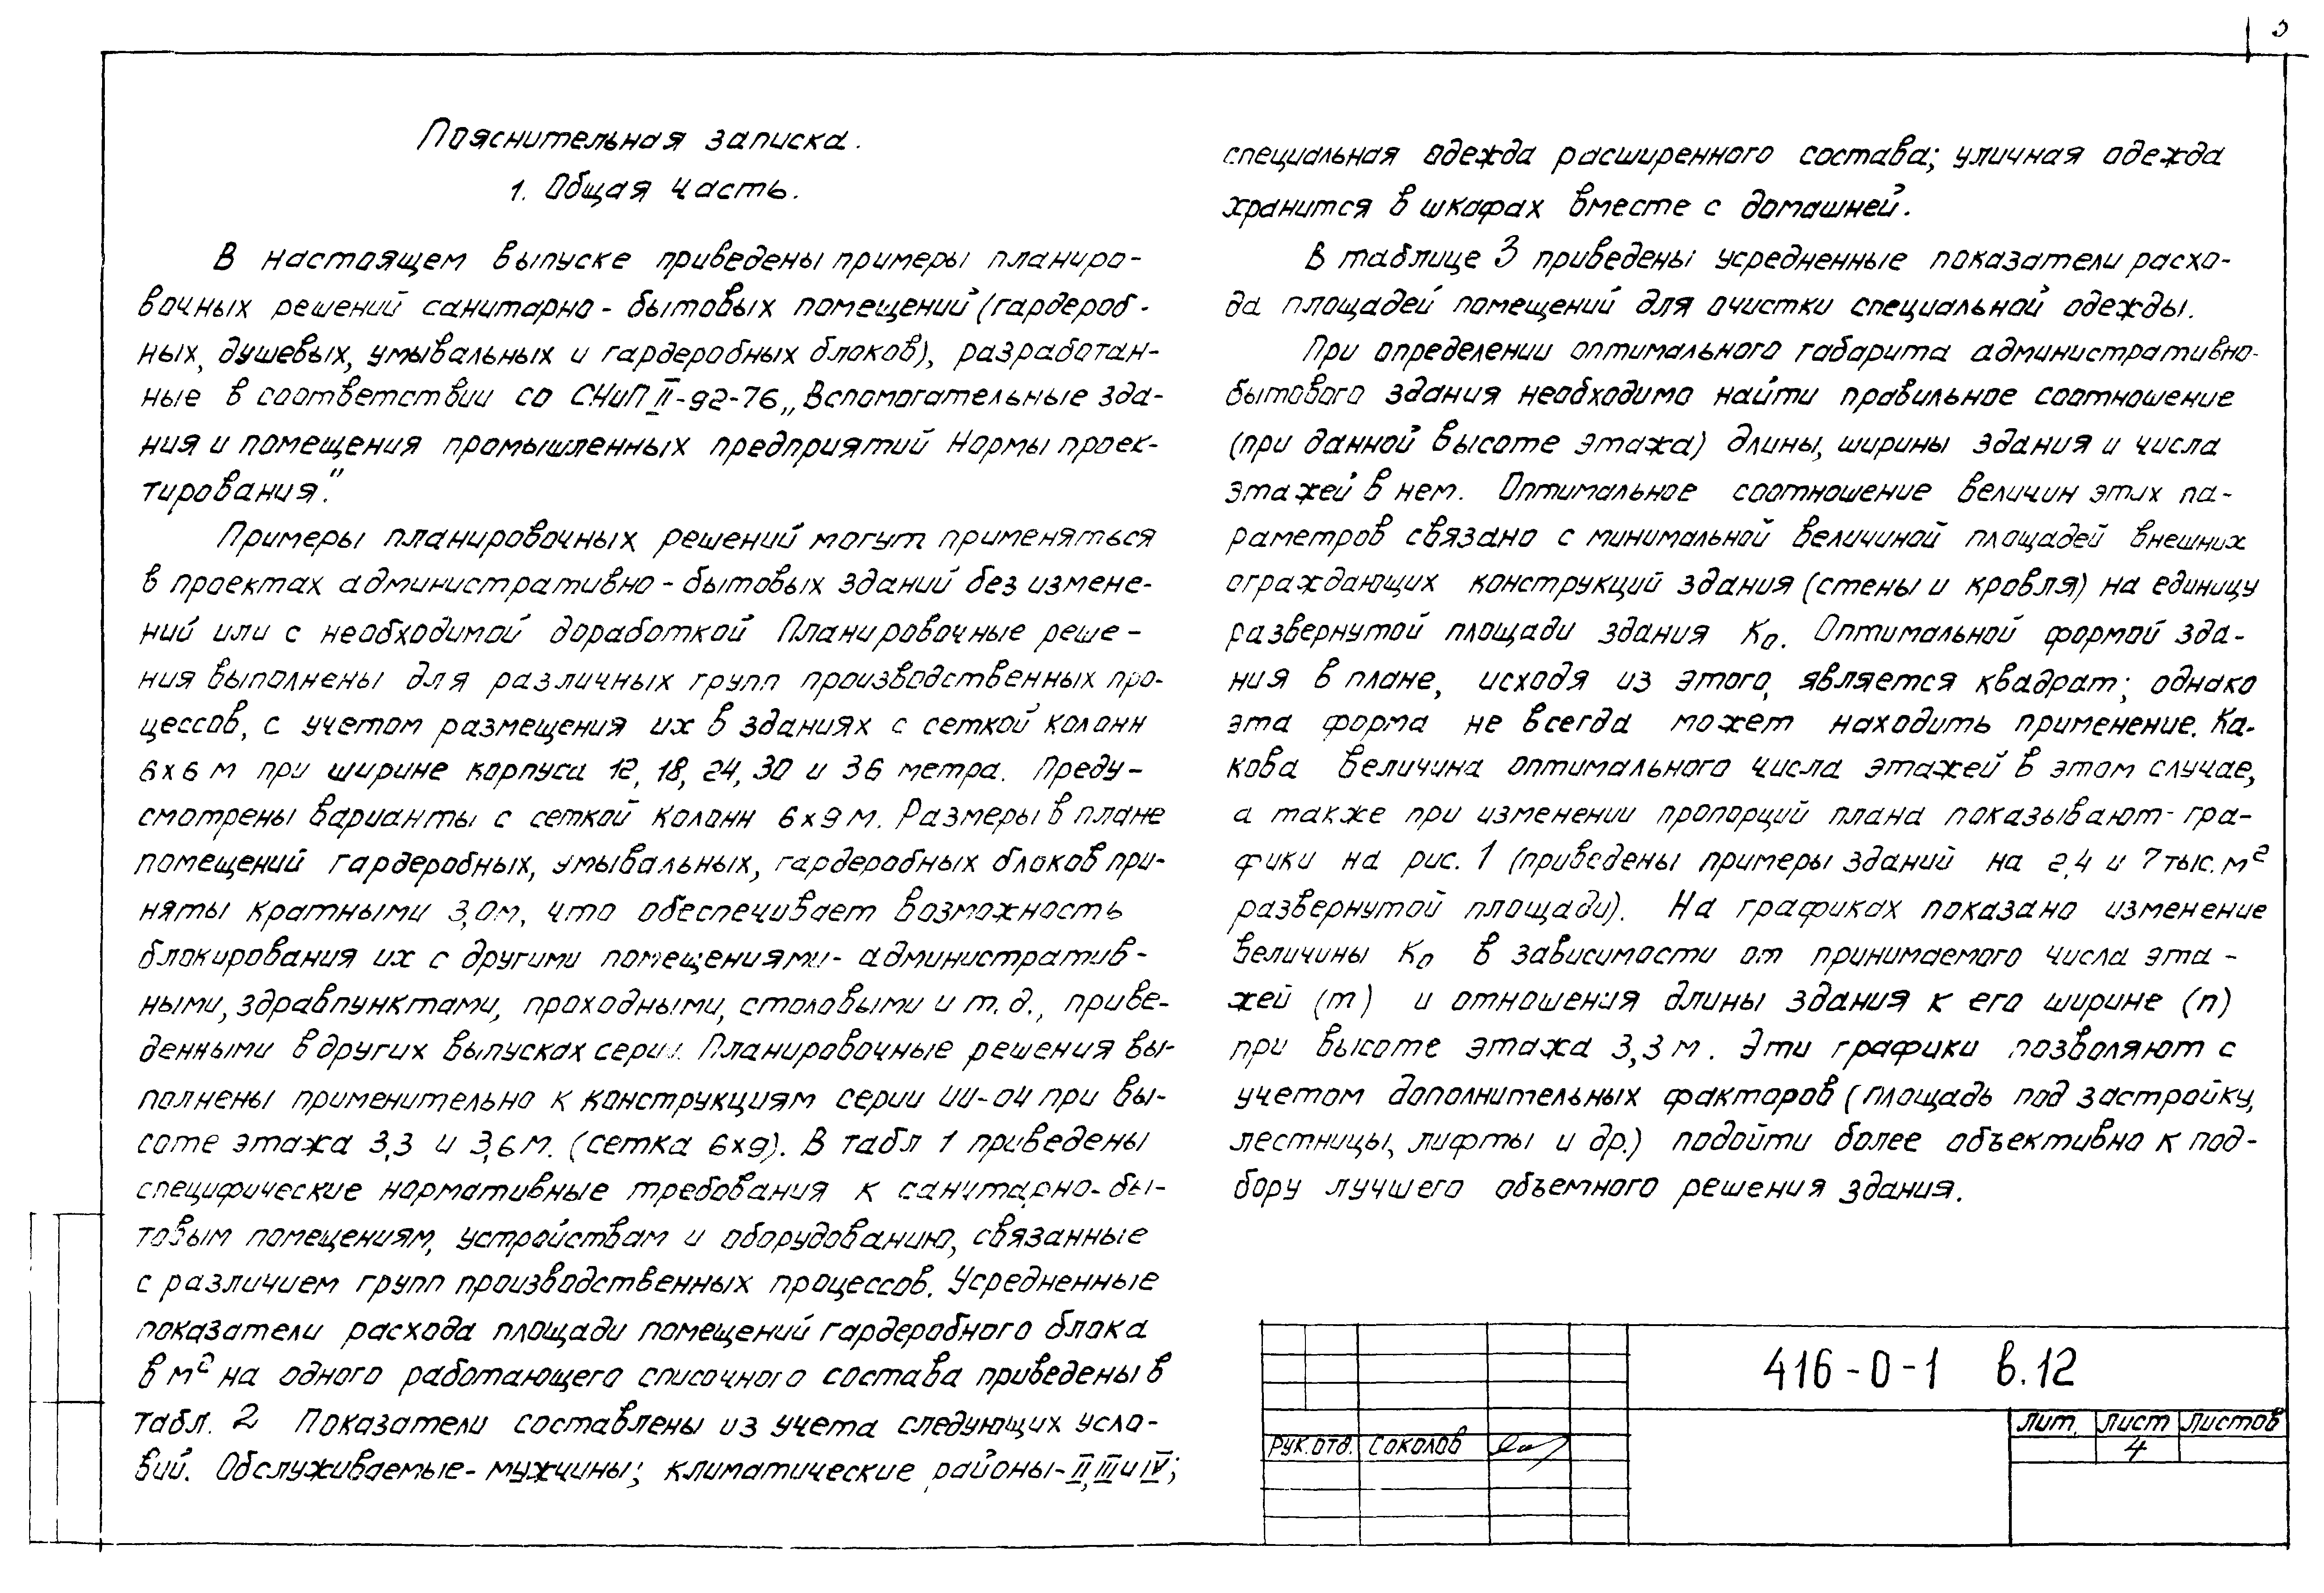 Пояснительная записка.
1. Общая часть.
В настоящем выпуске приведены примеры планиро-
вочных решений санитарно-бытовых помещений (гардероб-
ных, душевых, умывальных и гардеробных блоков), разработан-
ные в соответствии со СНиП II-92-76 „Вспомогательные зда-
ния и помещения промышленных предприятий Нормы проек-
тирования".
Примеры планировочных решений могут применяться
в проектах административно-бытовых зданий без измене-
ний или с необходимой доработкой Планировочные реше-
ния выполнены для различных групп производственных про-
цессов, с учетом размещения их в зданиях с сеткой колонн
6х6 м при ширине корпуса 12, 18, 24, 30 и 36 метра. Преду-
смотрены варианты с сеткой колонн 6х9 м. Размеры в плане
помещений гардеробных, умывальных, гардеробных блоков при-
няты кратными 3,0м, что обеспечивает возможность
блокирования их с другими помещениями- административ-
ными, здравпунктами, проходными, столовыми и т.д., приве-
денными в других выпусках серии. Планировочные решения вы-
полнены применительно к конструкциям серии ИИ-04 при вы-
соте этажа 3,3 и 3,6 м. (сетка 6х9). В табл 1 приведены
специфические нормативные требования к санитарно-бы-
товым помещениям, устройствам и оборудованию, связанные
с различием групп производственных процессов. Усредненные
показатели расхода площади помещений гардеробного блока
в м² на одного работающего списочного состава приведены в
табл. 2 Показатели составлены из учета следующих усло-
вий. Обслуживаемые- мужчины; климатические районы- II, III и IV;
специальная одежда расширенного состава; уличная одежда
хранится в шкафах вместе с домашней.
В таблице 3 приведены усредненные показатели расхо-
да площадей помещений для очистки специальной одежды.
При определении оптимального габарита административно-
бытового здания необходимо найти правильное соотношение
(при данной высоте этажа) длины, ширины здания и числа
этажей в нем. Оптимальное соотношение величин этих па-
раметров связано с минимальной величиной площадей внешних
ограждающих конструкций здания (стены и кровля) на единицу
развернутой площади здания Ко. Оптимальной формой зда-
ния в плане, исходя из этого, является квадрат; однако
эта форма не всегда может находить применение. Ка-
кова величина оптимального числа этажей в этом случае,
а также при изменении пропорций плана показывают гра-
фики на рис. 1 (приведены примеры зданий на 2,4 и 7 тыс. м²
развернутой площади). На графиках показано изменение
величины Ко в зависимости от принимаемого числа эта-
жей (m) и отношения длины здания к его ширине (n)
при высоте этажа 3,3 м. Эти графики позволяют с
учетом дополнительных факторов (площадь под застройку,
лестницы, лифты и др.) подойти более объективно к под-
бору лучшего объемного решения здания.
416-0-1 в.12
Лит. Лист Листов
4
Рук.отд. Соколов